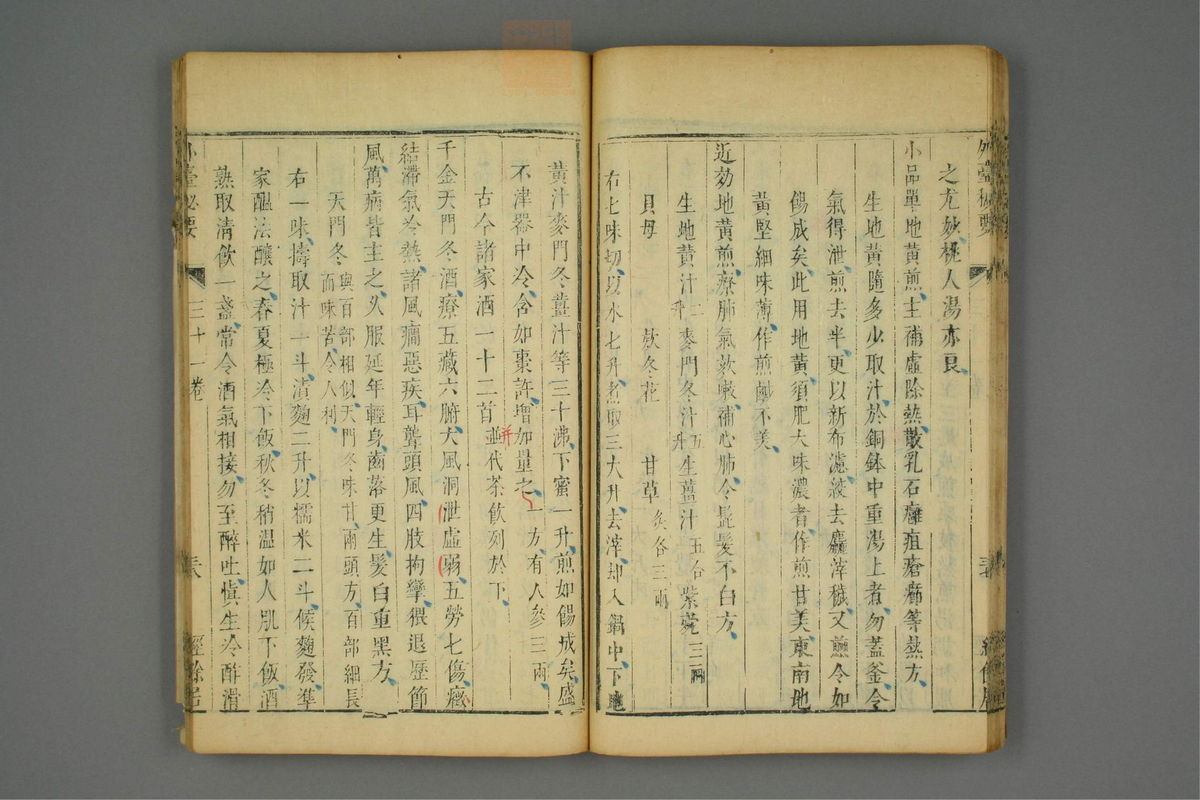 外臺秘要
之尤妙桃人湯亦良
小品單地黃煎主補虛除熱散乳石癰疽瘡癤等熱方
生地黃隨多少取汁於銅鉢中重湯上煮勿蓋釜令
氣得泄煎去半更以新布濾絞去麤滓穢又煎令如
餳成矣此用地黃須肥大味濃者作煎甘美東南地
黃堅細味薄作煎鹹不美
近効地黃煎療肺氣欬嗽補心肺令髭髮不白方
生地黃汁二升 麥門冬汁五升 生薑汁五合 紫菀三兩
貝母 欵冬花 甘草炙各三兩
右七味切以水七升煮取三大升去滓却入鍋中下地
黃汁麥門冬薑汁等三十沸下蜜一升煎如餳成矣盛
不津器中冷含如棗許增加量之一方有人參三兩
古今諸家酒一十二首並代茶飲刻於下
并
千金天門冬酒療五藏六腑大風洞泄虛弱五勞七傷癥
結滯氣冷熱諸風癎惡疾耳聾頭風四肢拘攣猥退歷節
風萬病皆主之久服延年輕身齒落更生髮白重黑方
天門冬與百部相似天門冬味甘兩頭方百部細長
而味苦令人利
右一味擣取汁一斗漬麴二升以糯米二斗候麴發準
家醞法釀之春夏極冷下飯秋冬稍温如人肌下飯酒
熟取清飲一盞常令酒氣相接勿至醉吐慎生冷酢滑
外臺秘要
三十一卷
經餘居